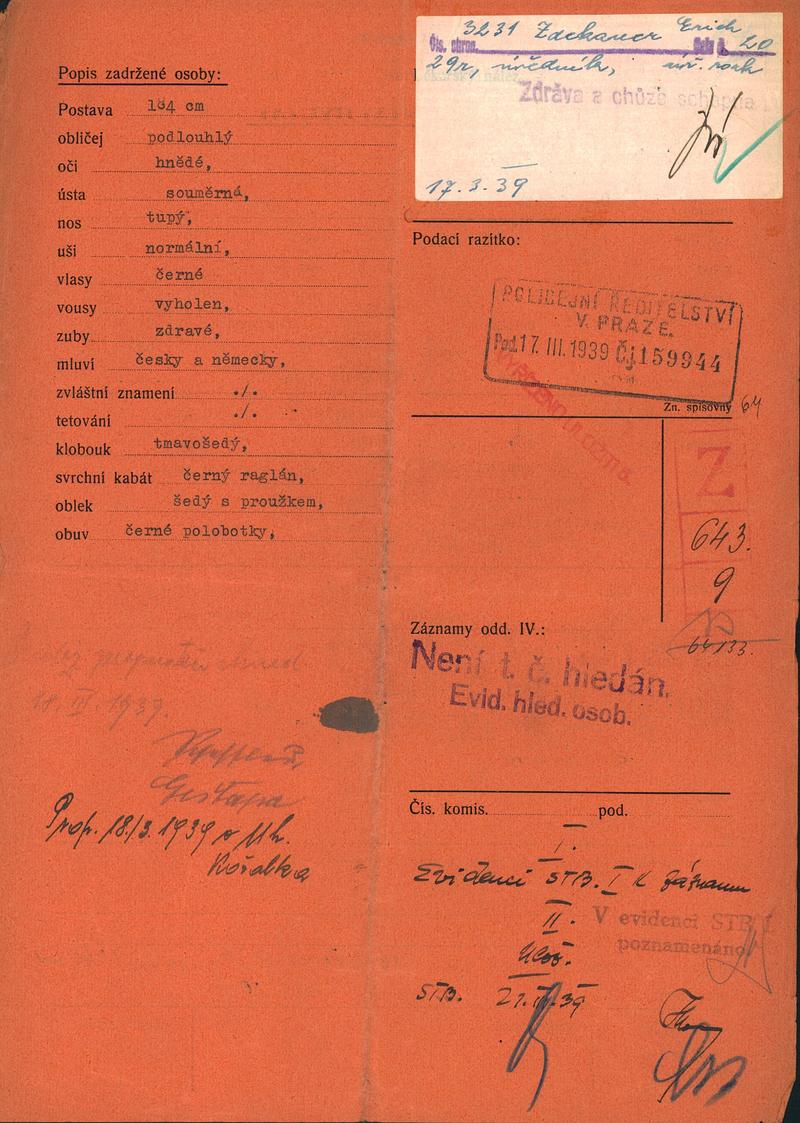 Popis zadržené osoby:
Postava 184 cm
obličej podlouhlý
oči hnědé,
ústa souměrná,
nos tupý,
uši normální,
vlasy černé
vousy vyholen,
zuby zdravé,
mluví česky a německy,
zvláštní znamení ./.
tetování ./.
klobouk tmavošedý,
svrchní kabát černý raglán,
oblek šedý s proužkem,
obuv černé polobotky,
18. III. 1939.
Gestapa
Prop. 18/3. 1939 v 11 h.
3231 Erich
20
29r, úředník,
Zdráva a chůze schopna
17.3.39
Podací razítko:
POLICEJNÍ ŘEDITELSTVÍ
V PRAZE.
Pod. 17. III. 1939 Čj 159944
Zn. spisovny 64
Z
643.
9
64133.
Záznamy odd. IV.:
Není t. č. hledán.
Evid. hled. osob.
Čís. komis. pod.
I.
Evidenci STB. I k záznamu
II.
V evidenci STB I
poznamenáno
STB.